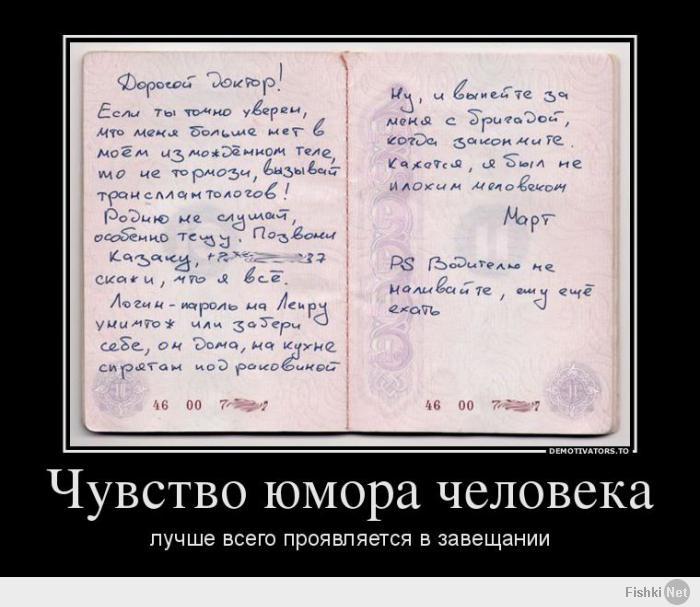 Дорогой Доктор!
Если ты точно уверен,
что меня больше нет в
моём измождённом теле,
то не тормози, вызывай
трансплантологов!
Родню не слушай,
особенно тещу. Позвони
Казаку,
скажи, что я всё.
Логин-пароль на Лепру
уничтож или забери
себе, он дома, на кухне
спрятан под раковиной
46 00 7
Ну, и выпейте за
меня с бригадой,
когда закончите.
Кажется, я был не
плохим человеком
Март
PS Водителю не
наливайте, ему ещё
ехать
46 00 7
DEMOTIVATORS.TO
Чувство юмора человека
лучше всего проявляется в завещании
Fishki Net